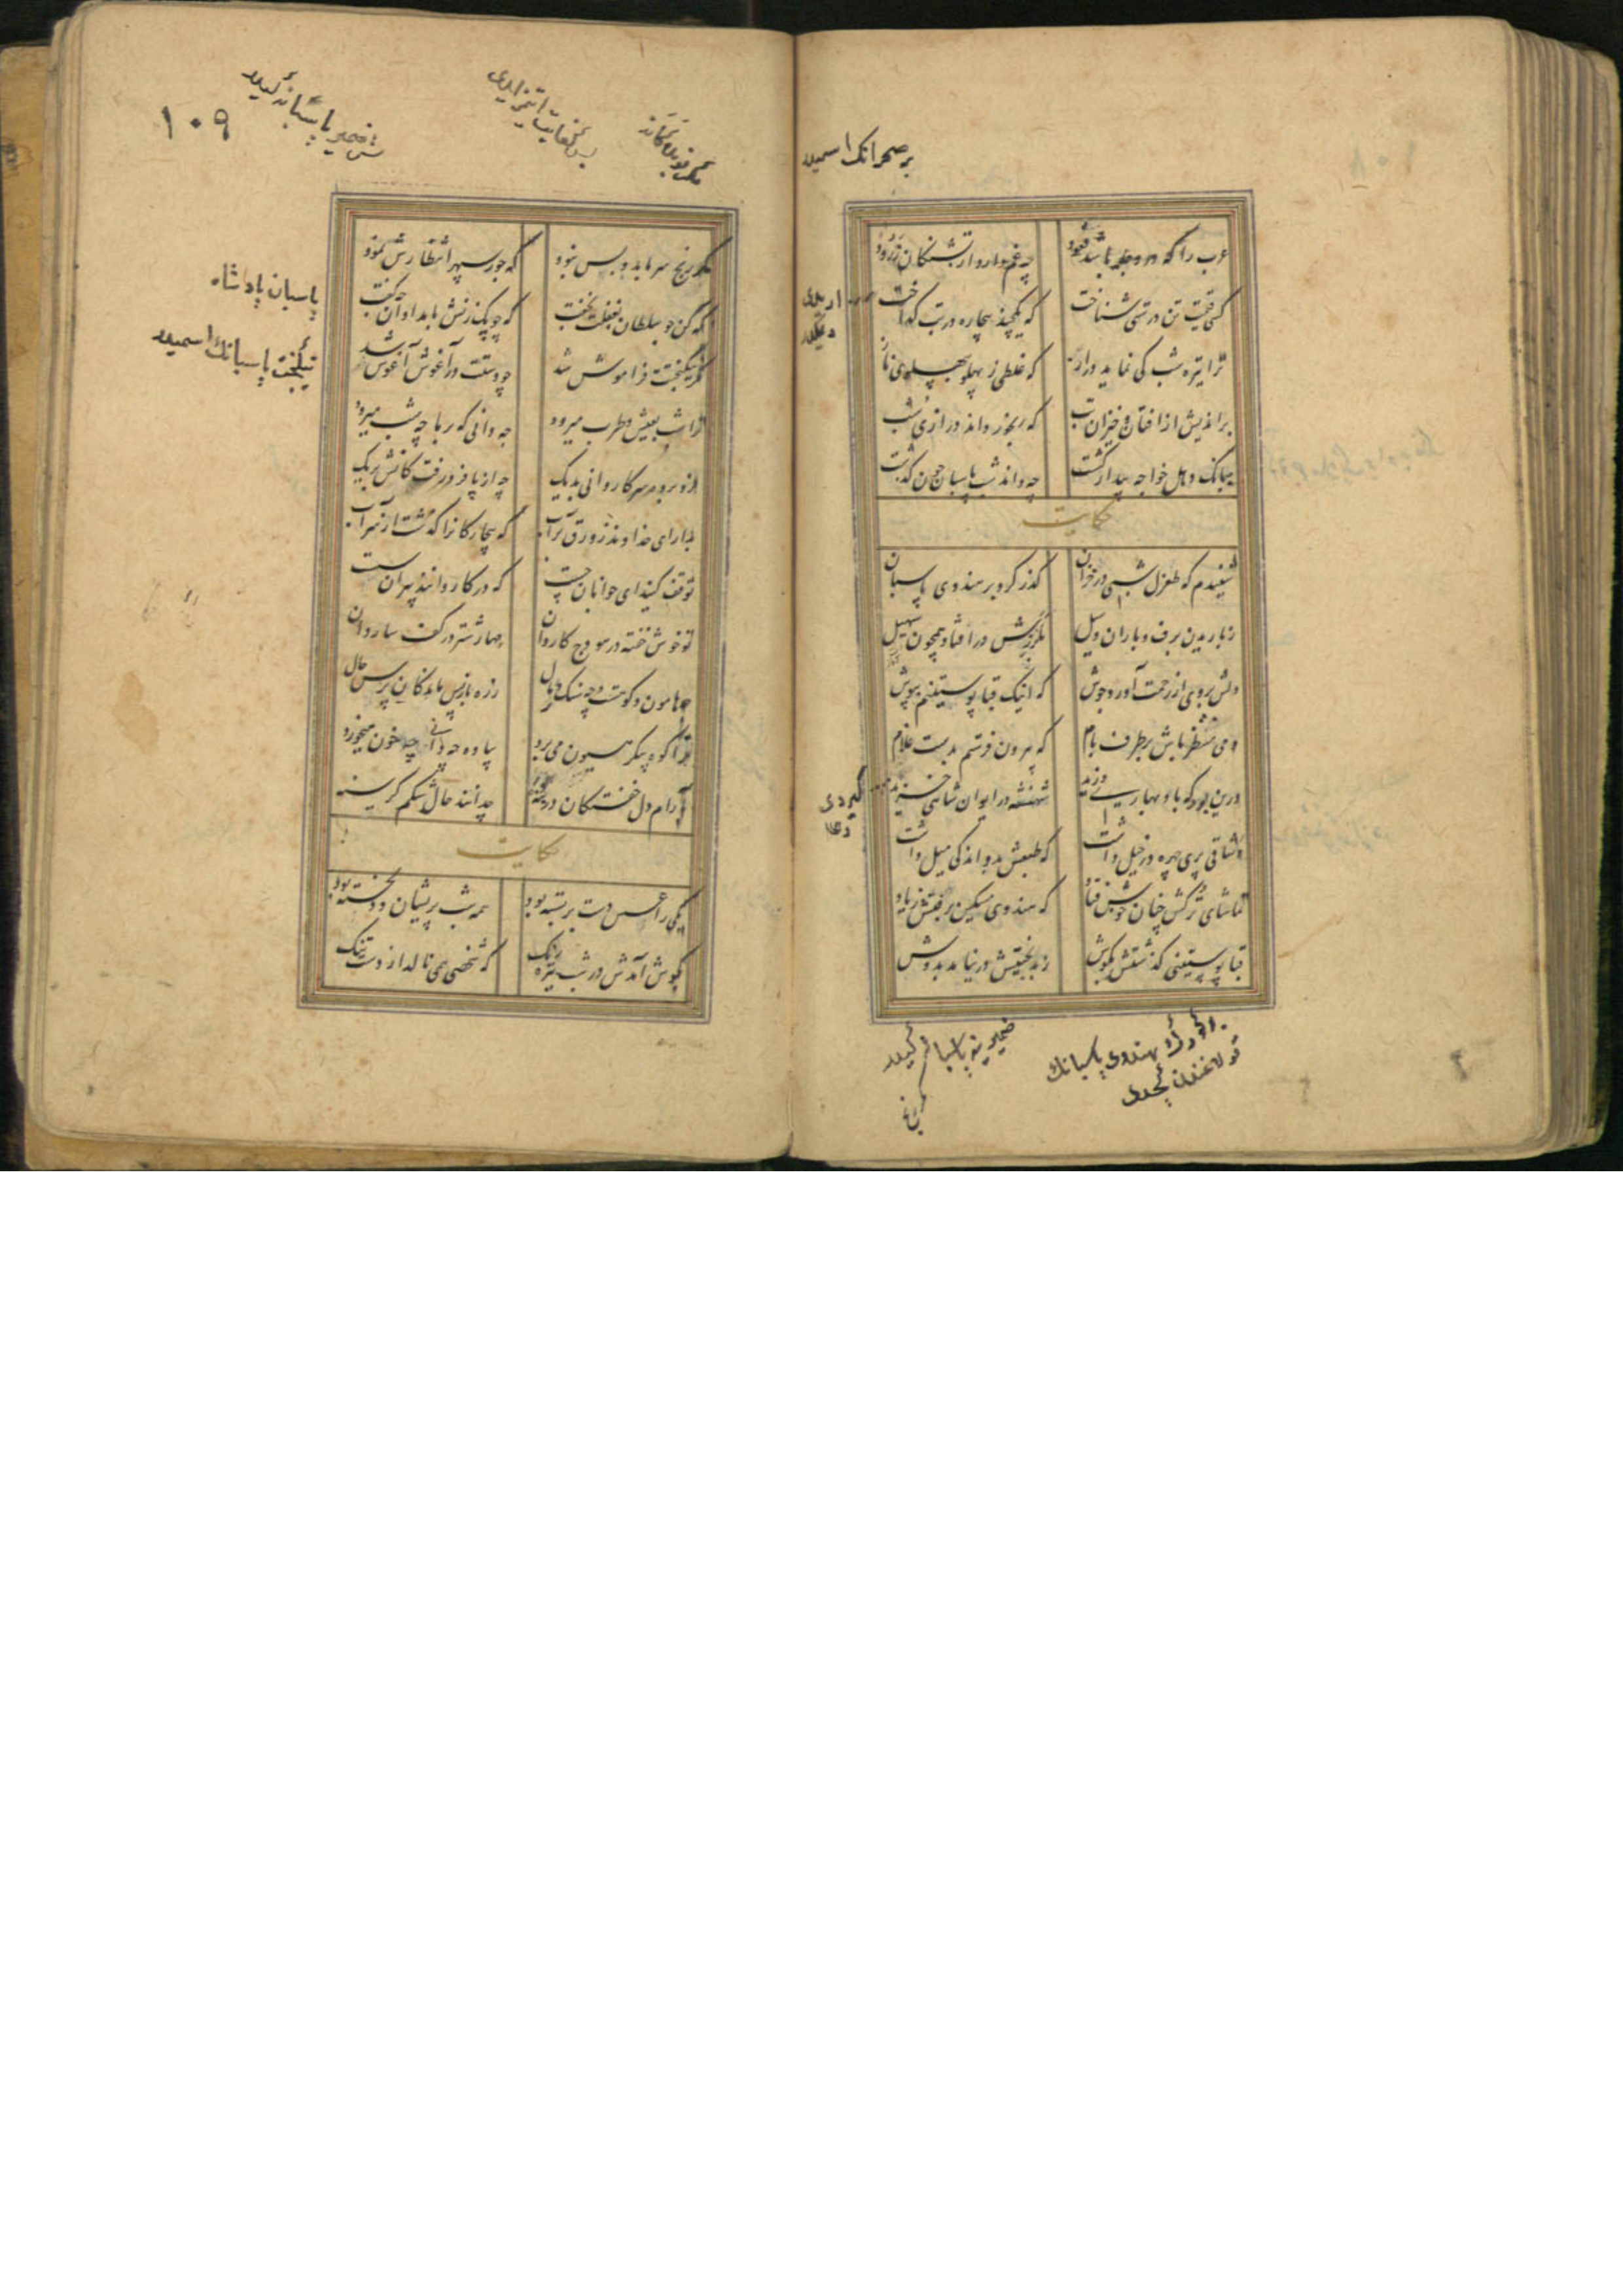 بر صحرانك اسميدر
عرب را که در دجله باشد قعود
چه غم دارد از تشنکان زرود
کسی قیمت تن درستی شناخت
که یکچند بیچاره در تب کداخت
ترا تیره شب کی نماید دراز
که غلطی ز پهلو بپهلوی ناز
براندیش از افتان و خیزان تب
که رنجور داند درازی شب
ببانک دهل خواجه بیدار کشت
چه داند شب پاسبان چون کذشت
حکایت
شنیدم که طغرل شبی در خزان
کذر کرد بر هندوی پاسبان
ز باریدن برف و باران و سیل
بلرزش در افتاد همچون سهیل
دلش بروی از رحمت آورد جوش
که اینک قبا پوستینم بپوش
دمی منتظر باش بر طرف بام
که بیرون فرستم بدست غلام
درین بود که باد بهاری وزید
شهنشه در ایوان شاهی خزید
وشاقی پری چهره در خیل داشت
که طبعش بدو اندکی میل داشت
تماشای ترکش چنان خوش فتاد
که هندوی مسکین برفتش ز یاد
قبا پوستینی کذشتش بکوش
ز بدبختیش در نیامد بدوش
هندوی پاسبانك
۱۰۹
پاسبان پادشاه
نیکبخت پاسبانك اسميدر
مکر رنج سرما برو بس نبود
که جور سپهر انتظارش نمود
نکه کن چو سلطان بغفلت بخفت
که چوبک زنش بامدادان چه کفت
مکر نیکبختت فراموش شد
چو دستت در آغوش آغوش شد
ترا شب بعیش و طرب میرود
چه دانی که بر ما چه شب میرود
فرو برده سر کاروانی بدیک
چه از پا فرو رفت کانش بریک
بدار ای خداوند زورق بر آب
که بیچارکانرا کذشت از سر آب
توقف کنید ای جوانان چست
که در کاروانند پیران سست
تو خوش خفته در هودج کاروان
مهار شتر در کف ساروان
چه هامون و کوهت چه سنک و رمال
ز ره باز پس ماندکان پرس حال
ترا کوه پیکر هیون می برد
پیاده چه دانی چه خون میخورد
بآرام دل خفتکان در بنه
چه دانند حال شکم کرسنه
حکایت
یکی را عسس دست بر بسته بود
همه شب پریشان و دلخسته بود
بکوش آمدش در شب تیره رنک
که شخصی همی نالد از دست تنک